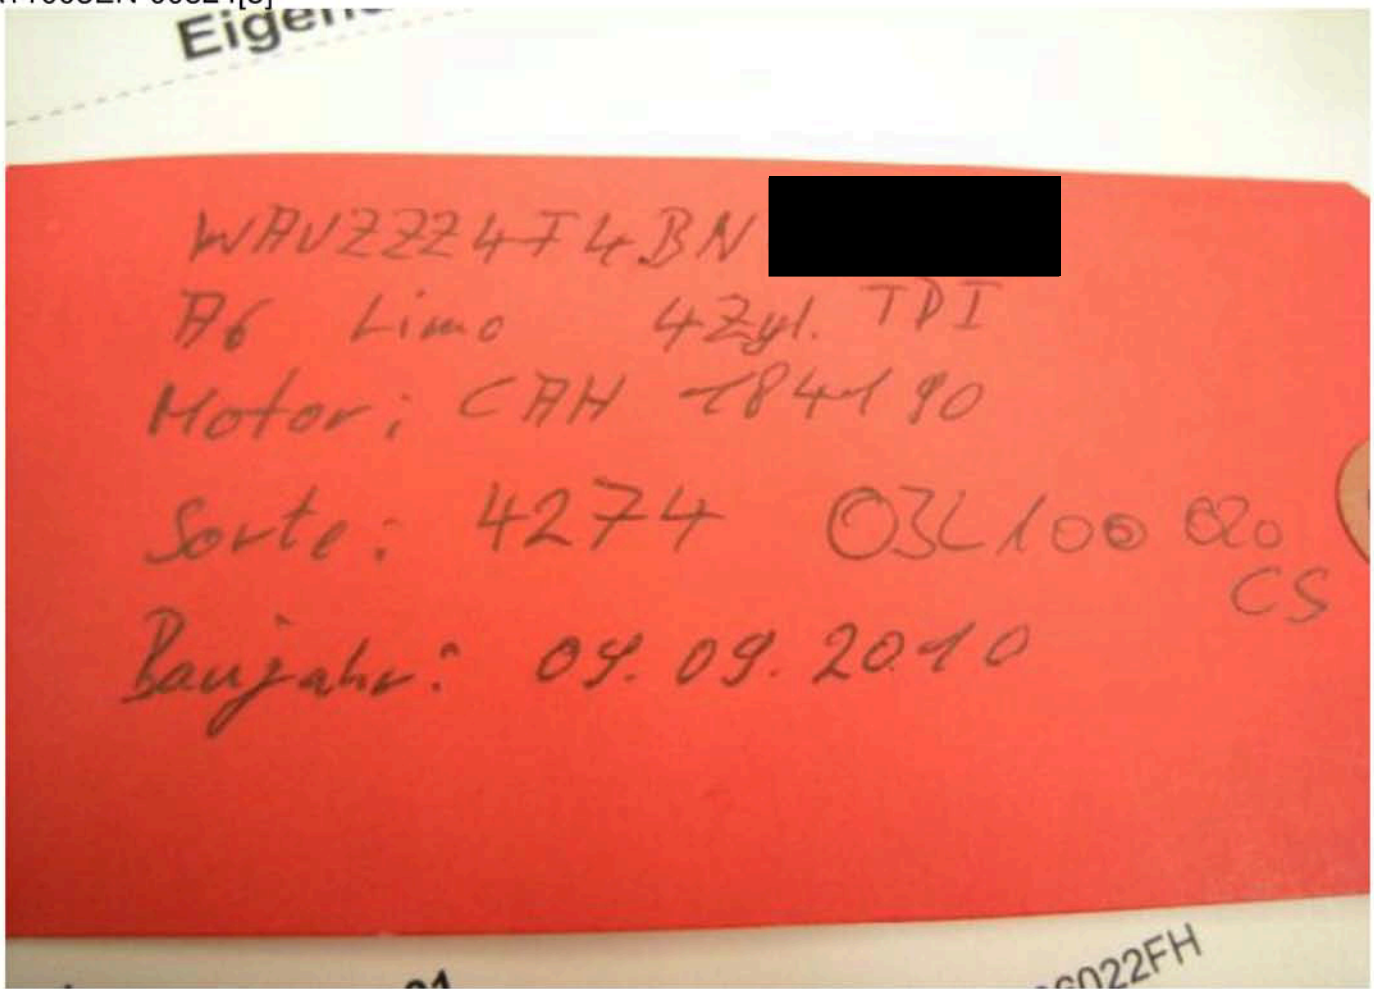 Eigen
WAUZZZ4F4BN
A6 Limo 4Zyl. TDI
Motor: CAH 184190
Sorte: 4274 03L100 020
CS
Baujahr: 09.09.2010
6022FH